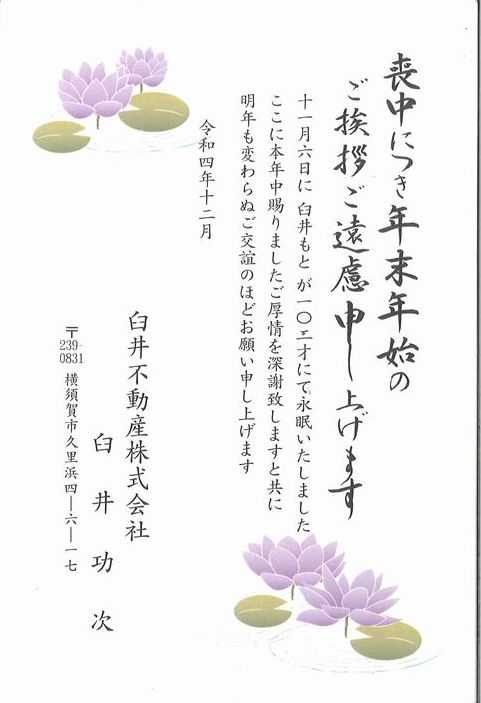 喪中につき年末年始の
ご挨拶ご遠慮申し上げます
十一月六日に 臼井もと が一〇三才にて永眠いたしました
ここに本年中賜りましたご厚情を深謝致しますと共に
明年も変わらぬご交誼のほどお願い申し上げます
令和四年十二月
臼井不動産株式会社
臼井功次
〒239-0831 横須賀市久里浜四―六―一七